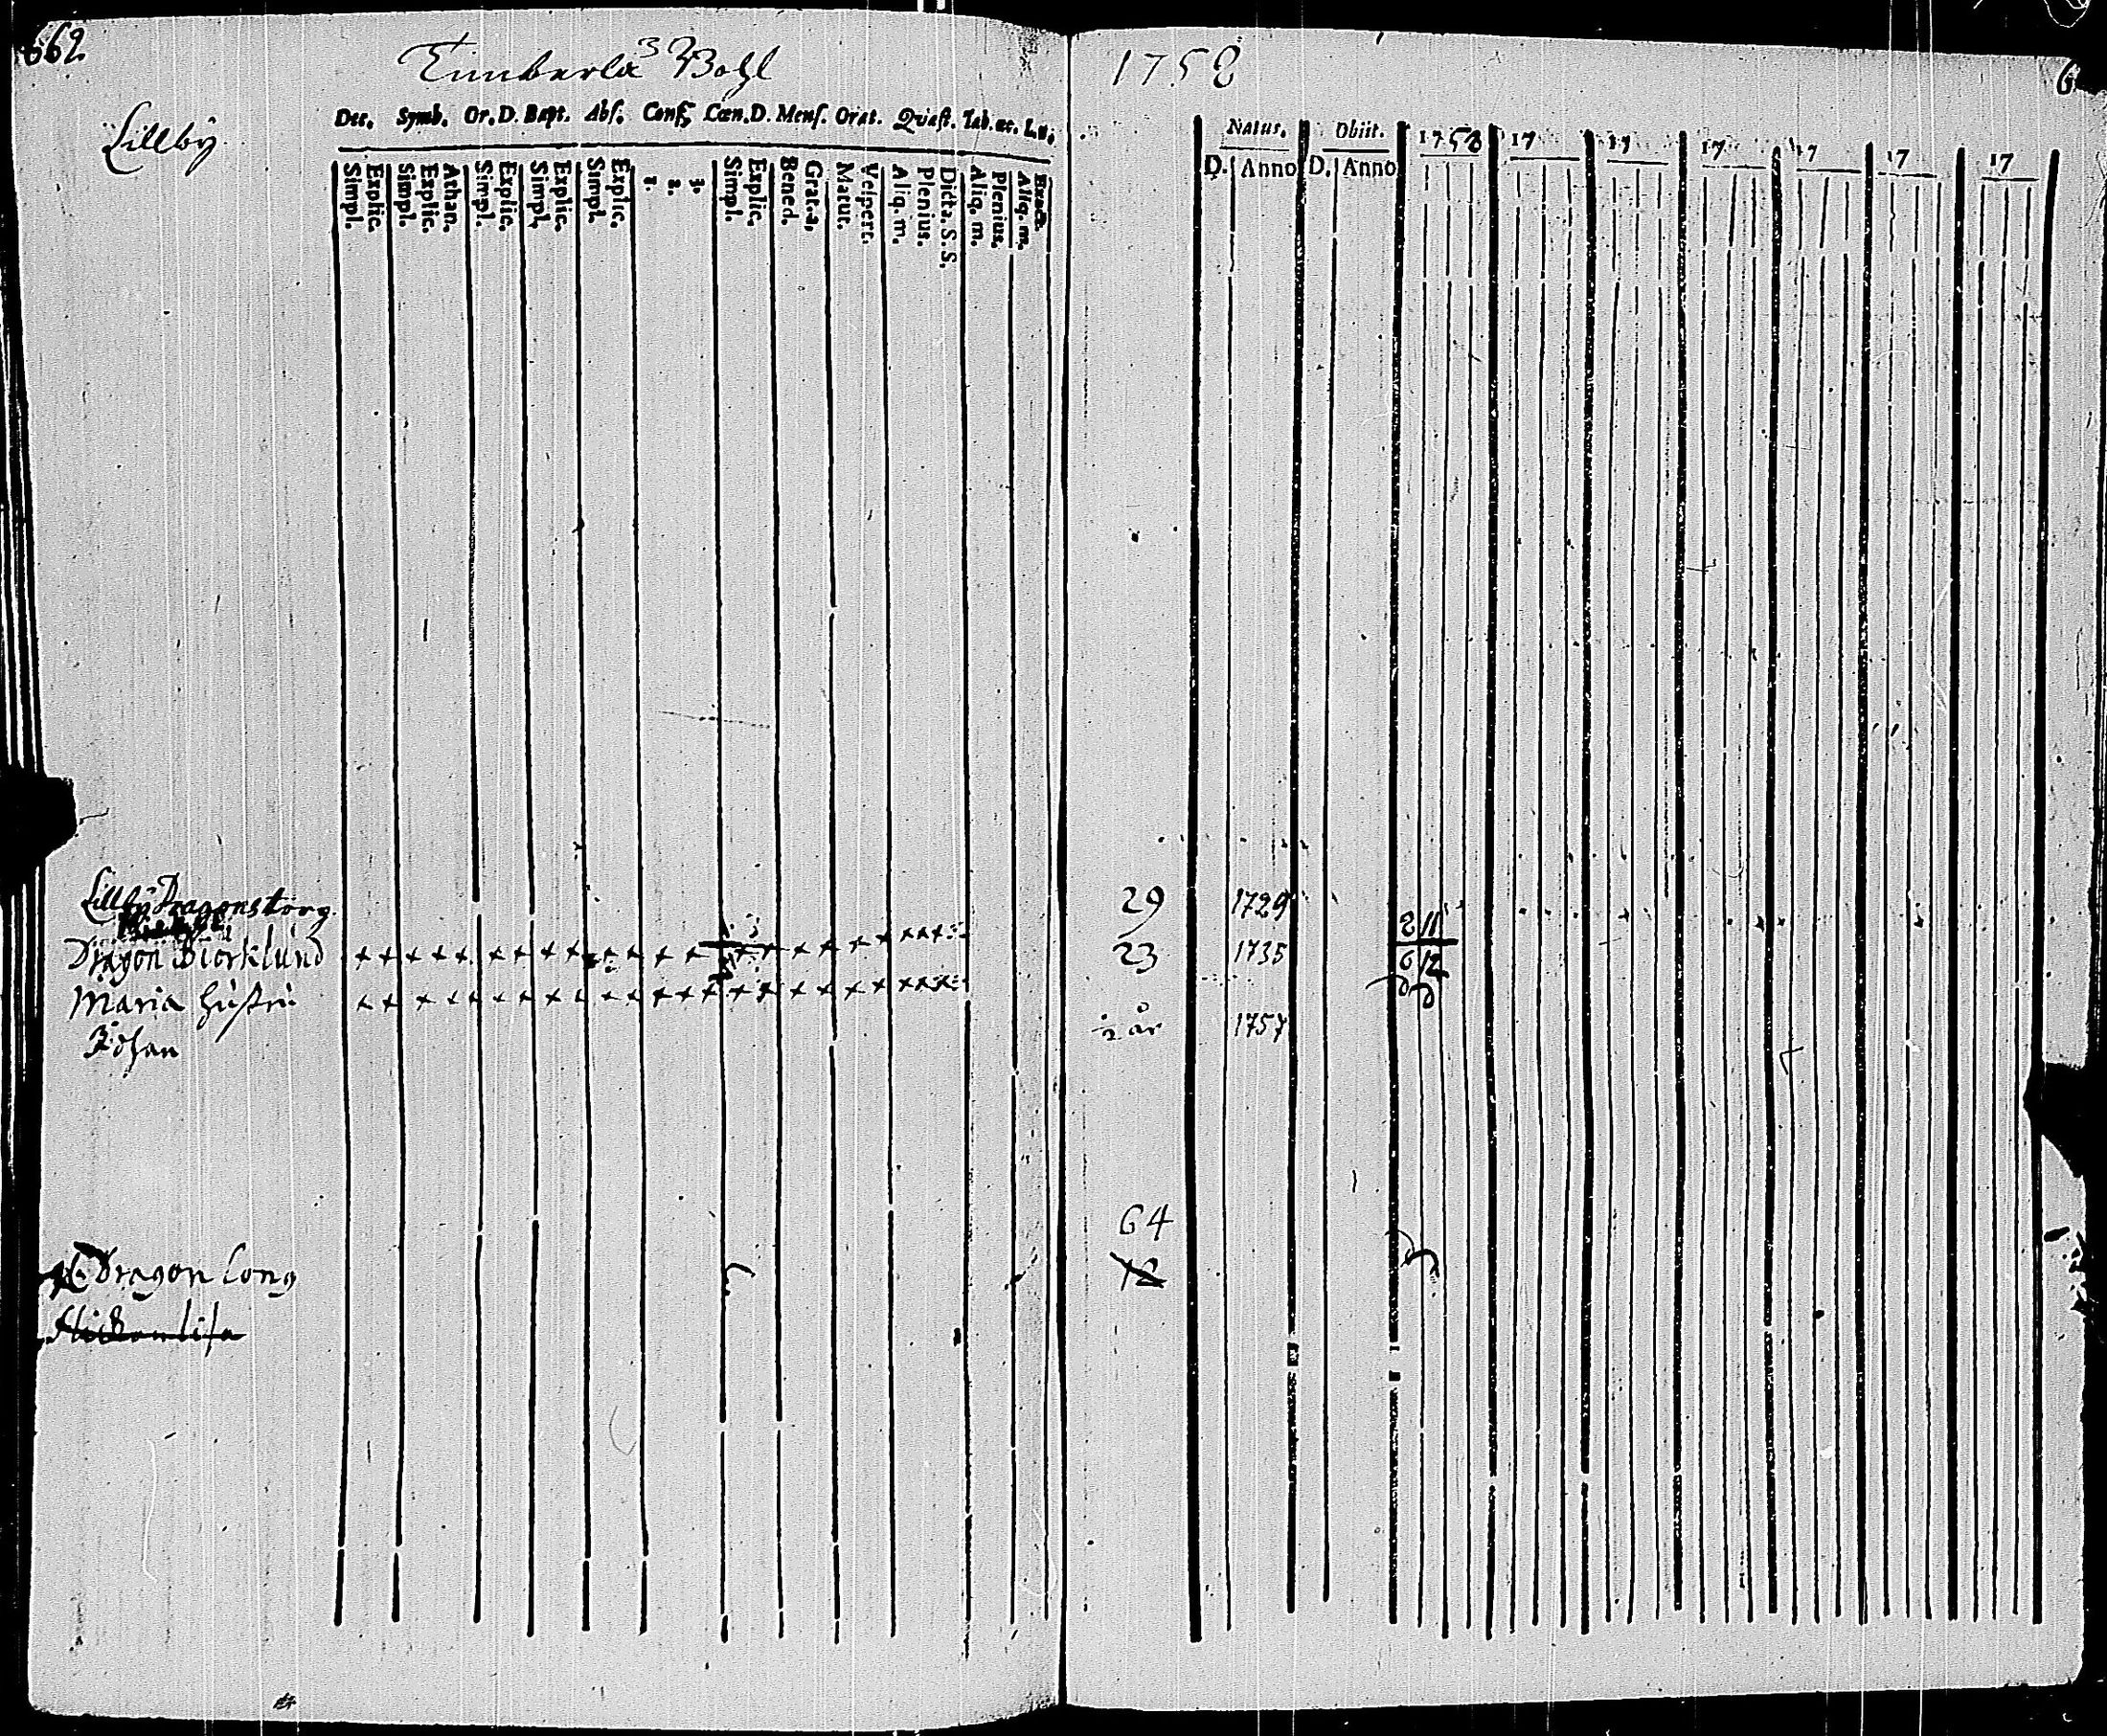 662
Timberla 3 Bohl 1758
Lillby
Dec. Symb. Or.D. Bapt. Abs. Conf. Cœn.D. Mens. Orat. Quæst. Tab.œc. L.u.
Simpl. Explic. Simpl. Explic. Athan. Simpl. Explic. Simpl. Explic. Simpl. Explic. 1. 2. 3. Simpl. Explic. Bened. Grat.a, Matut. Vespert. Aliq. m. Plenius. Dicta. S. S. Aliq. m. Plenius. Aliq. m. Exacte.
Natus. Obiit. 1758 17 17 17 17 17 17
D. Anno D. Anno
Lillby Dragonstorp 29 1729 2 11
Dragon Biorklund 23 1735 6 12
Maria hustru
Johan ½ år 1757
64
Dragon Long 12